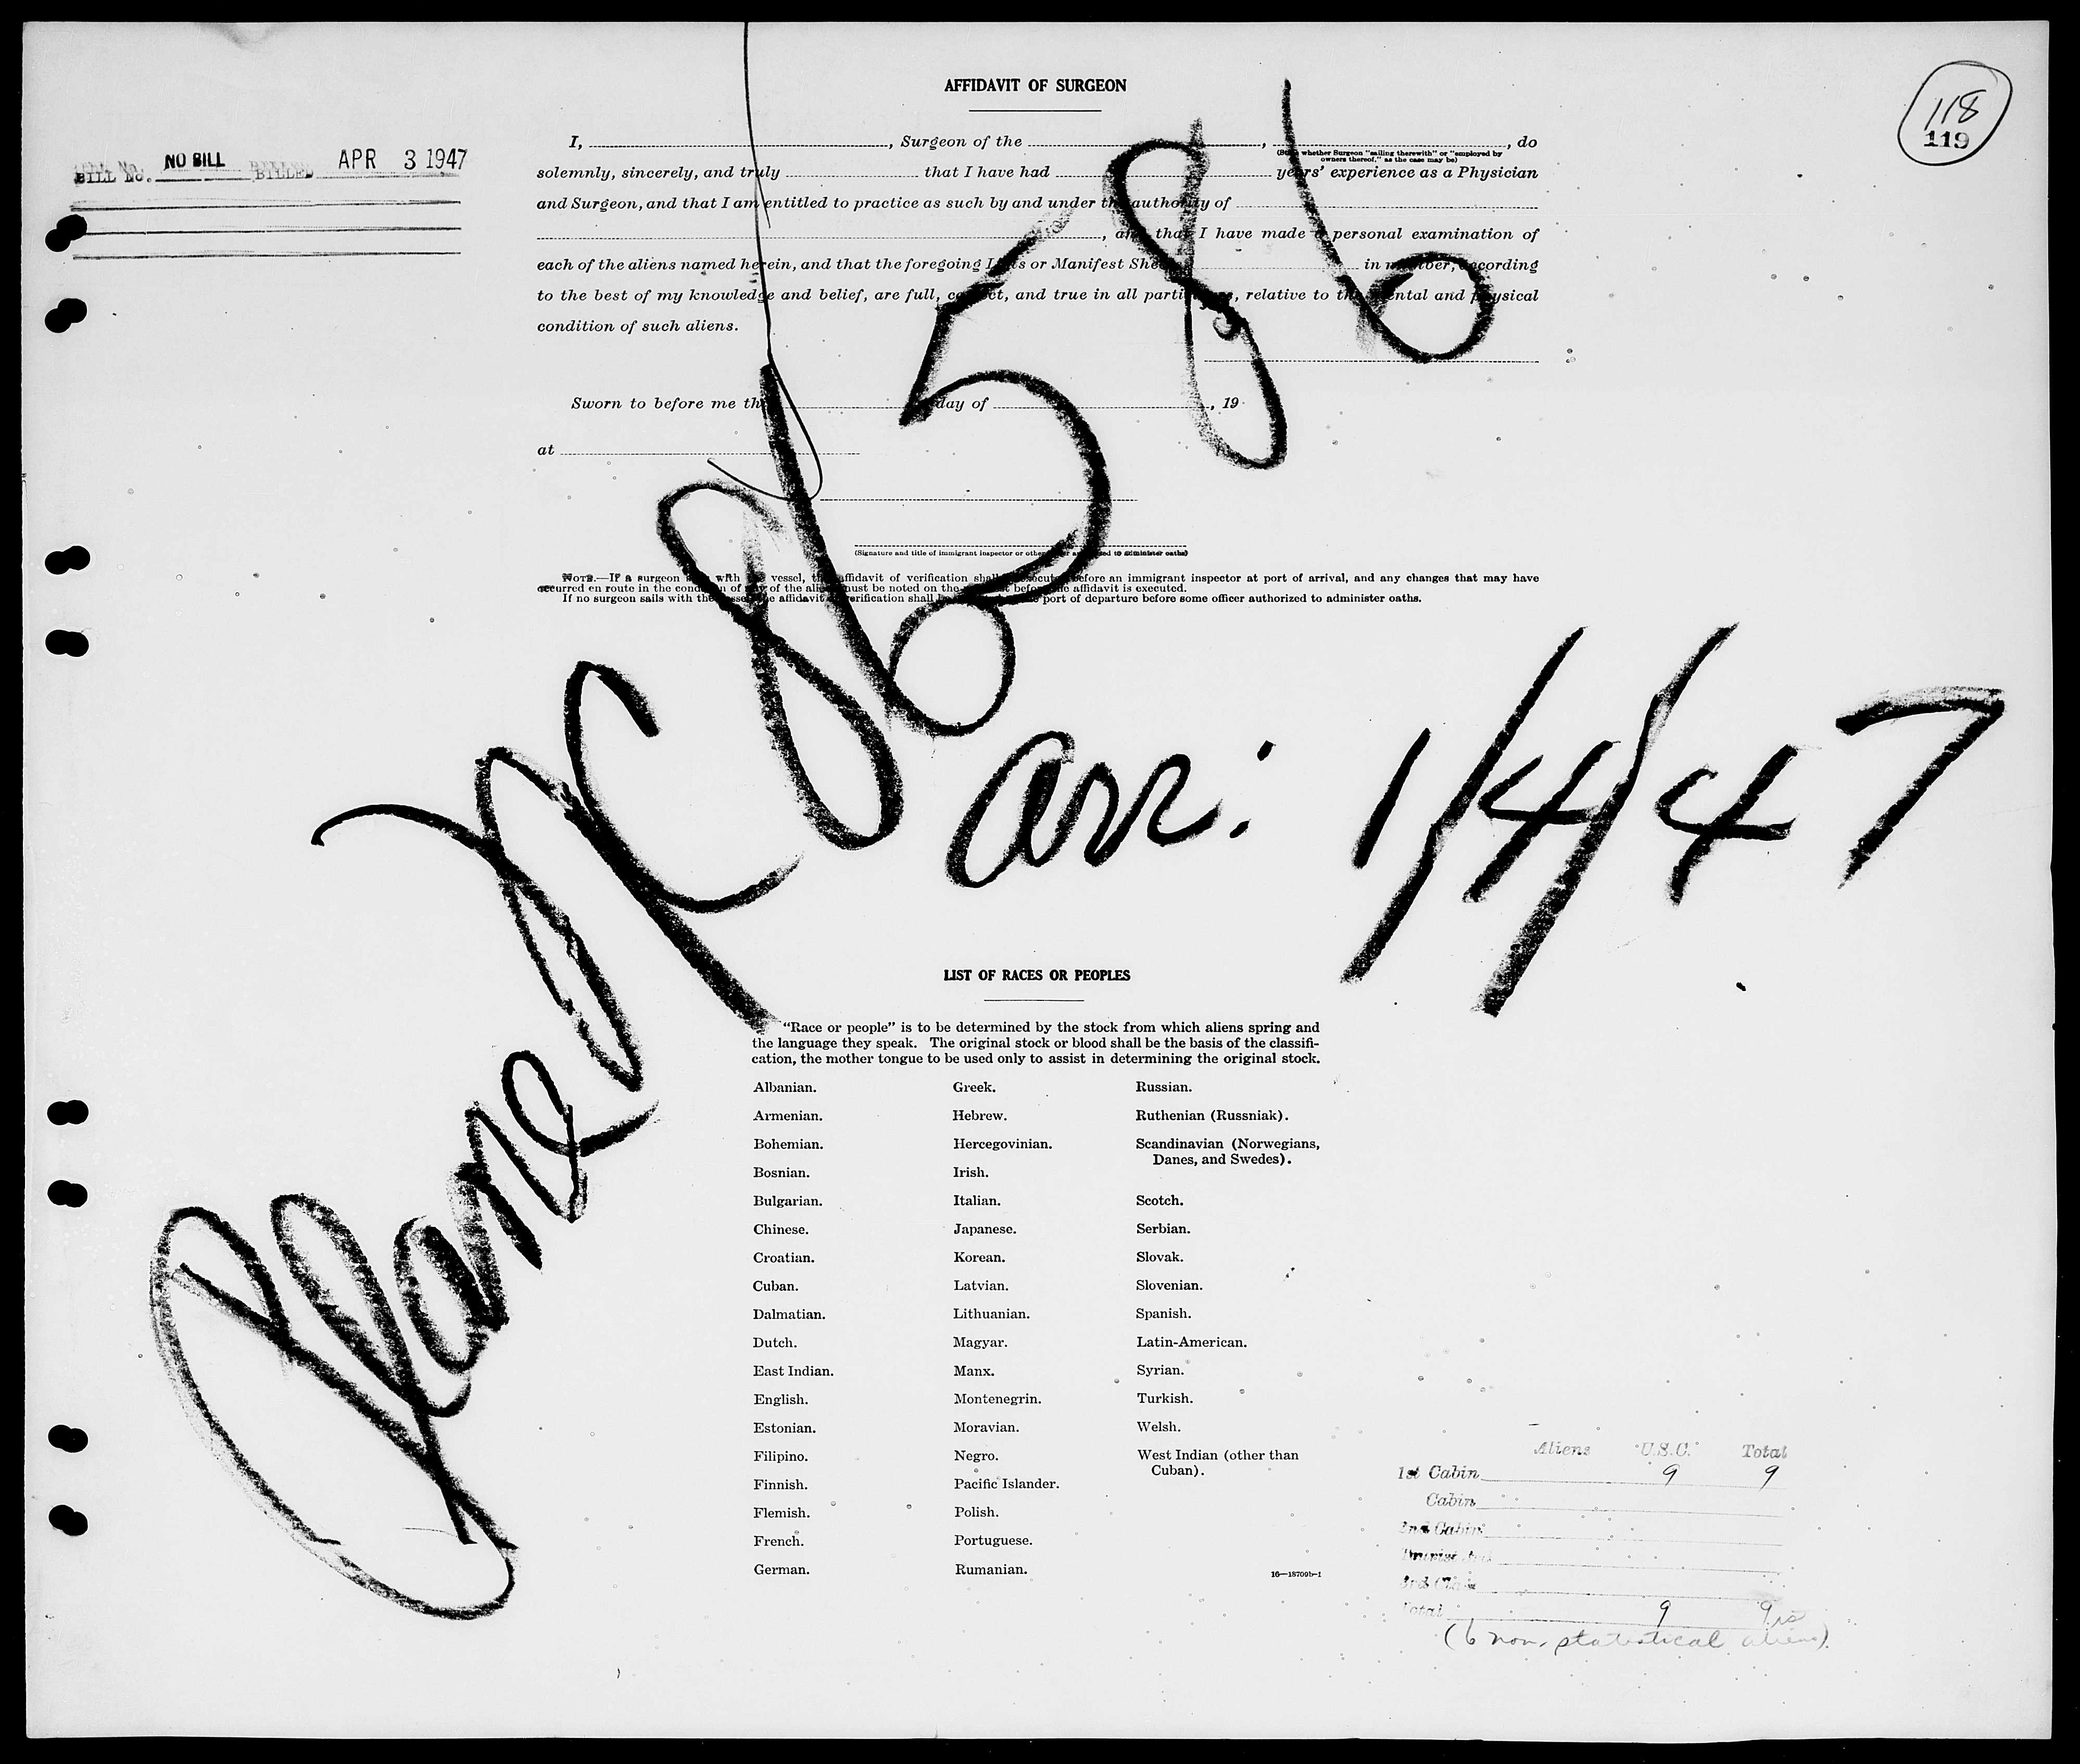 AFFIDAVIT OF SURGEON
118
119
BILL No. NO BILL BILLED APR 3 1947
I, , Surgeon of the , , do
(State whether Surgeon "sailing therewith" or "employed by
owners thereof," as the case may be)
solemnly, sincerely, and truly that I have had years' experience as a Physician
and Surgeon, and that I am entitled to practice as such by and under the authority of
, and that I have made a personal examination of
each of the aliens named herein, and that the foregoing Lists or Manifest Sheets in number, according
to the best of my knowledge and belief, are full, correct, and true in all particulars, relative to the mental and physical
condition of such aliens.
Sworn to before me this day of , 19
at
(Signature and title of immigrant inspector or other officer authorized to administer oaths)
NOTE.—If a surgeon sails with the vessel, the affidavit of verification shall be executed before an immigrant inspector at port of arrival, and any changes that may have
occurred en route in the condition of any of the aliens must be noted on the manifest before the affidavit is executed.
If no surgeon sails with the vessel the affidavit of verification shall be port of departure before some officer authorized to administer oaths.
Plane NC 86586
arr: 1/4/47
LIST OF RACES OR PEOPLES
"Race or people" is to be determined by the stock from which aliens spring and
the language they speak. The original stock or blood shall be the basis of the classifi-
cation, the mother tongue to be used only to assist in determining the original stock.
Albanian. Greek. Russian.
Armenian. Hebrew. Ruthenian (Russniak).
Bohemian. Hercegovinian. Scandinavian (Norwegians,
Danes, and Swedes).
Bosnian. Irish.
Bulgarian. Italian. Scotch.
Chinese. Japanese. Serbian.
Croatian. Korean. Slovak.
Cuban. Latvian. Slovenian.
Dalmatian. Lithuanian. Spanish.
Dutch. Magyar. Latin-American.
East Indian. Manx. Syrian.
English. Montenegrin. Turkish.
Estonian. Moravian. Welsh.
Filipino. Negro. West Indian (other than
Cuban).
Finnish. Pacific Islander.
Flemish. Polish.
French. Portuguese.
German. Rumanian.
16—18709b-1
Aliens U.S.C. Total
1st Cabin 9 9
Cabin
2nd Cabin
3rd
Total 9 9
(6 non-statistical aliens)